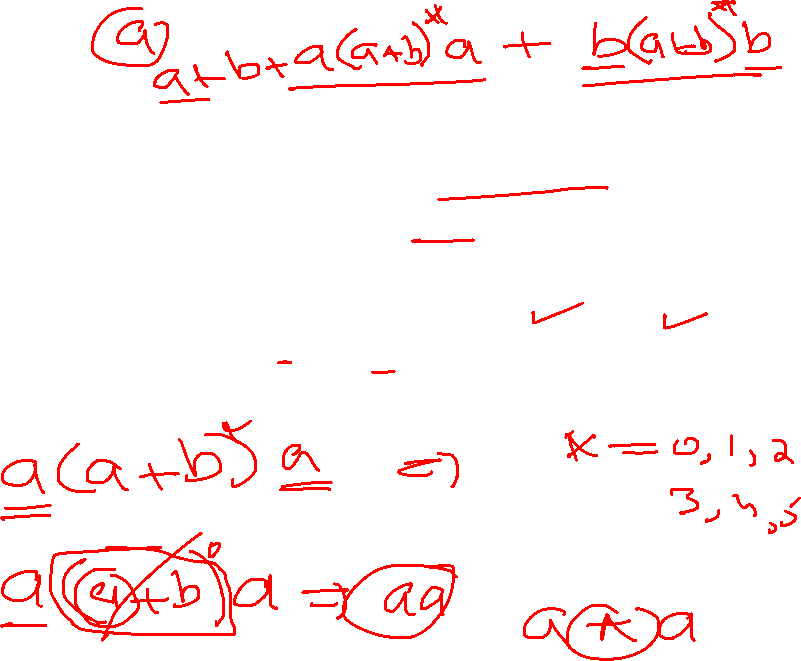 (a)
a+b+a(a+b)*a + b(a+b)*b
a(a+b)*a ⇒ * = 0, 1, 2
3, 4, 5
a(a+b)⁰a ⇒ aa
a * a